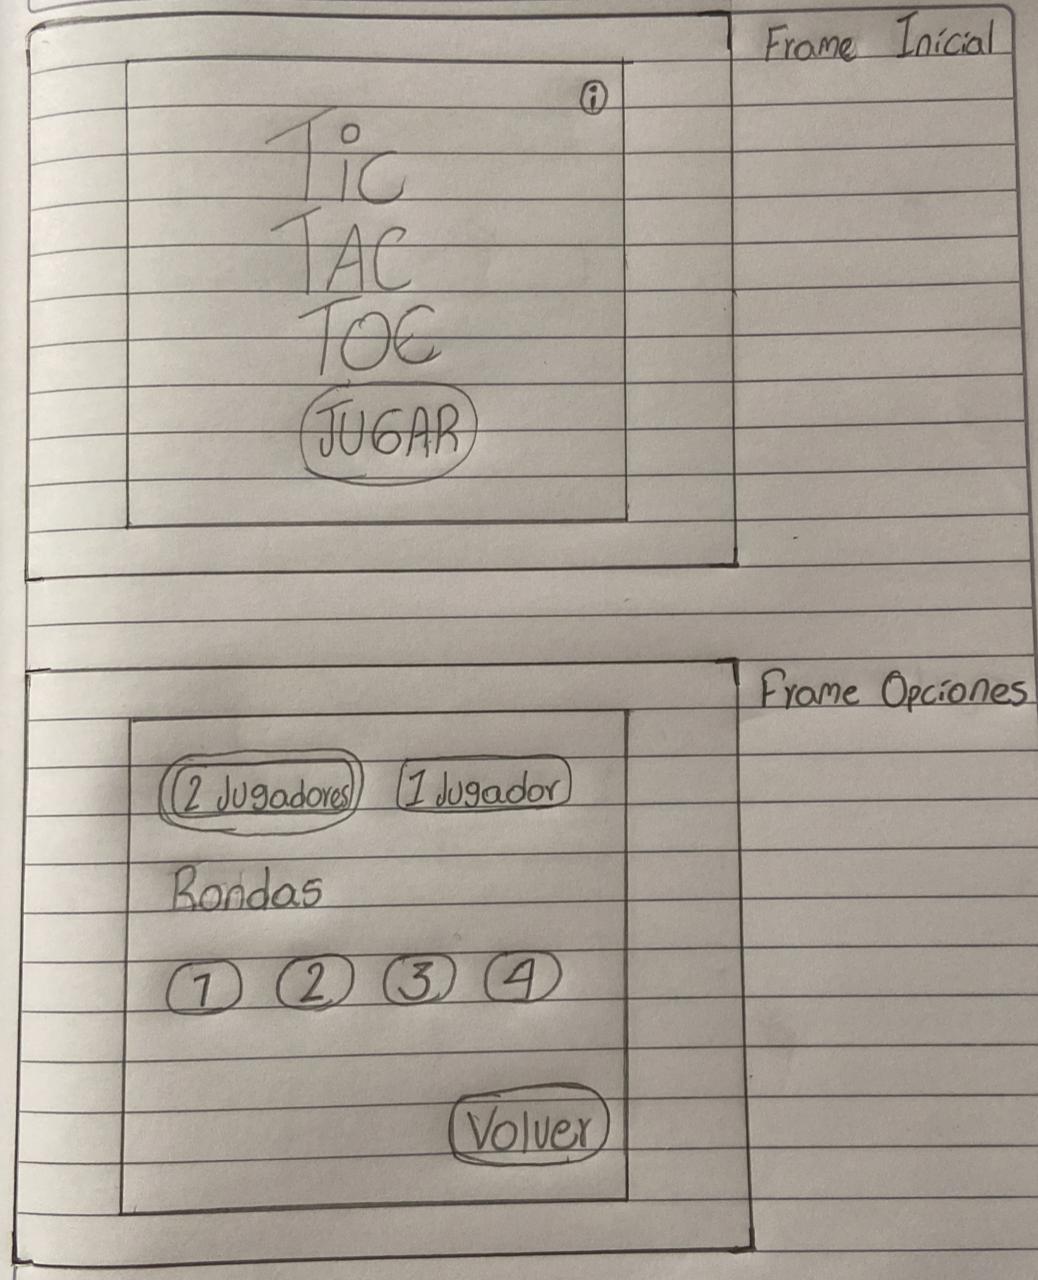 Frame Inicial
i
Tic
TAC
TOE
JUGAR
Frame Opciones
2 Jugadores 1 Jugador
Rondas
1 2 3 4
Volver